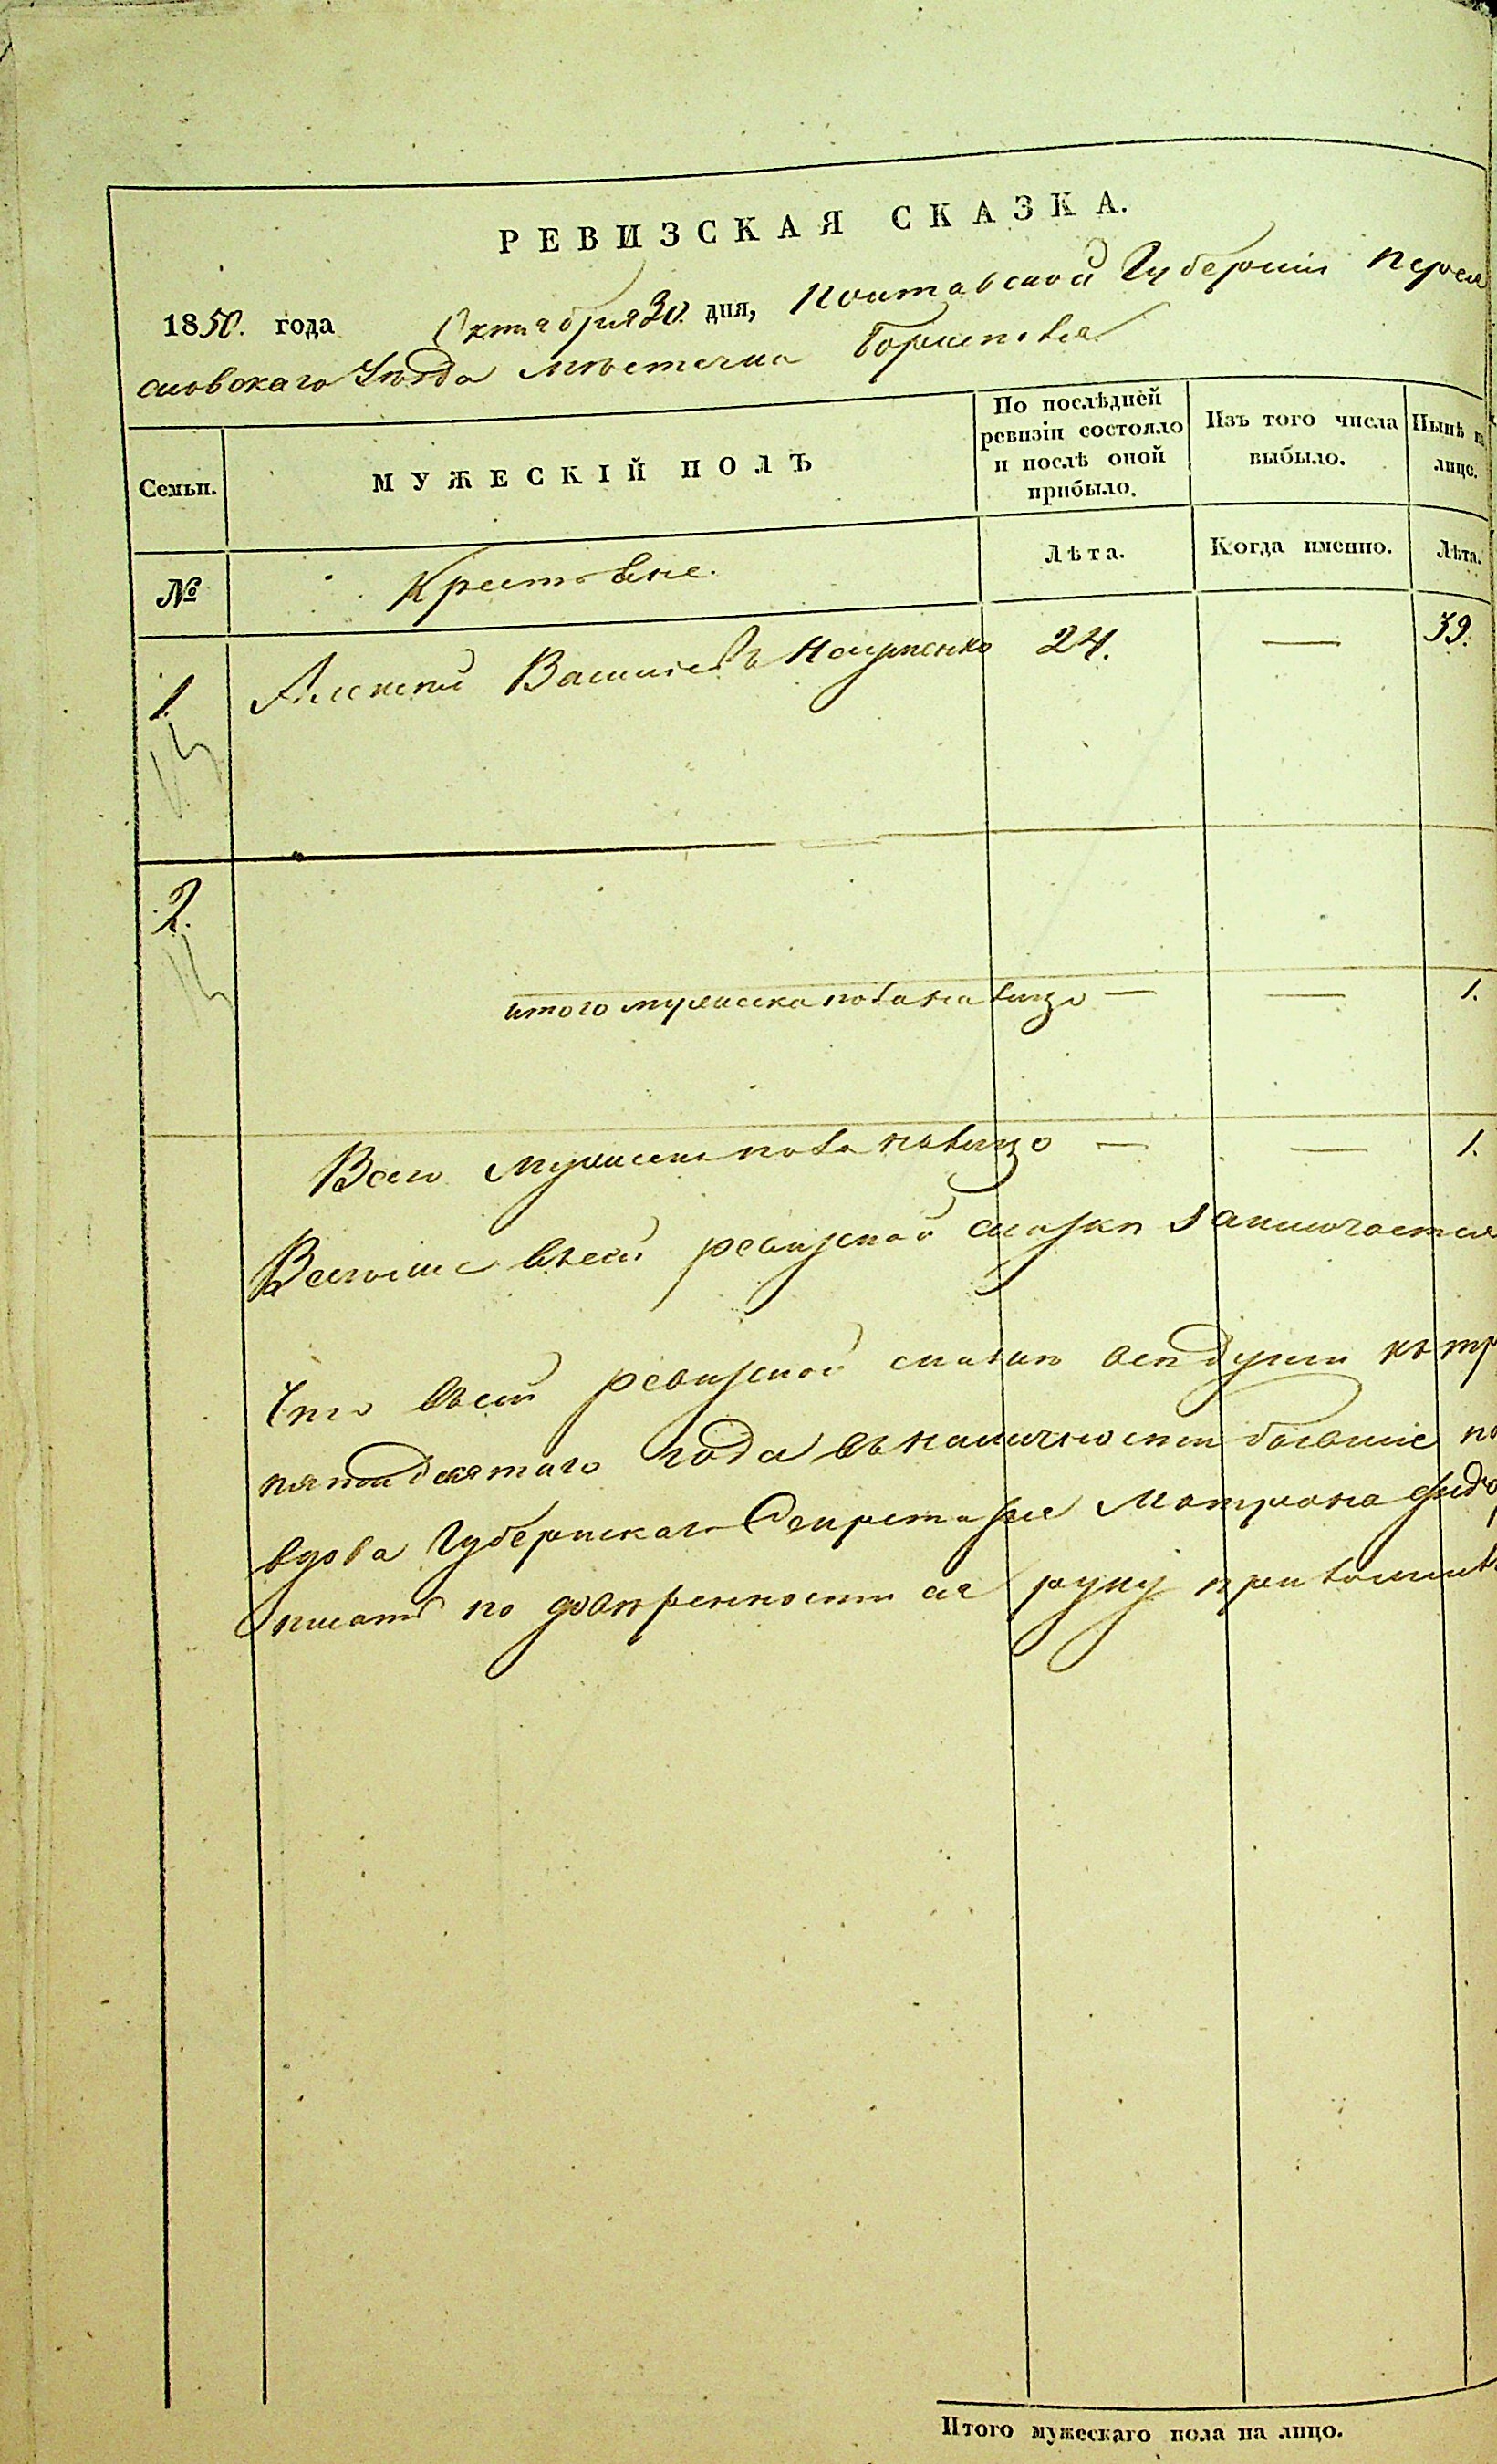 РЕВИЗСКАЯ СКАЗКА.
1850. года Октября 30. дня, Полтавской Губерніи Перея
словскаго Уѣзда мѣстечка Борисполя
Семьи.
МУЖЕСКІЙ ПОЛЪ
По послѣдней ревизіи состояло и послѣ оной прибыло.
Изъ того числа выбыло.
Нынѣ на лицо.
№
Крестьяне.
Лѣта.
Когда именно.
Лѣта.
1. Алексѣй Васильевъ 24. — 39.
2.
итого мужеска пола на лицо — — 1.
Всего мужеска пола на лицо — — 1.
Всего въ сей ревизской сказки заключается
Что въ сей ревизской сказки къ
пятидесятаго года въ наличности бывшие
вдова Губернская Секретарша Матрона
по довѣренности ея руку приложилъ
Итого мужескаго пола на лицо.